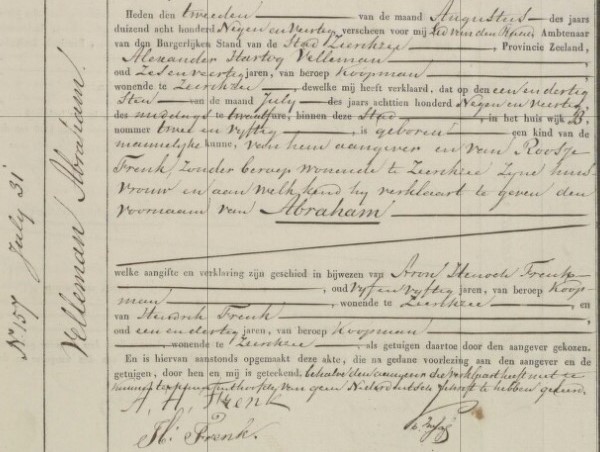 Heden den tweeden van de maand Augustus des jaars
duizend acht honderd Negen en Veertig verscheen voor mij Lid van den Raad, Ambtenaar
van den Burgerlijken Stand van de Stad Zierikzee, Provincie Zeeland,
Alexander Hartog Velleman
oud Zes en veertig jaren, van beroep Koopman
wonende te Zierikzee, dewelke mij heeft verklaard, dat op den een en dertig
sten van de maand July des jaars achttien honderd Negen en Veertig,
des middags te twaalf ure, binnen deze Stad in het huis wijk B,
nommer twee en vyftig, is geboren een kind van de
mannelijke kunne, van hem aangever en van Roosje
Frenk, zonder beroep wonende te Zierikzee Zyne huis
vrouw en aan welk kind hy verklaart te geven den
voornaam van Abraham
welke aangifte en verklaring zijn geschied in bijwezen van Aron Henoch Frenk
oud Vyf en Vyftig jaren, van beroep Koop
man, wonende te Zierikzee en
van Hendrik Frenk
oud een en dertig jaren, van beroep Koopman
wonende te Zierikzee als getuigen daartoe door den aangever gekozen.
En is hiervan aanstonds opgemaakt deze akte, die na gedane voorlezing aan den aangever en de
getuigen, door hen en mij is geteekend, behalve den aangever die verklaart heeft niet te
kunnen uithoofde van geen Nederduitsch schrift te hebben geleerd.
A. H. Frenk
H. Frenk.
No 157 July 31
Velleman Abraham.